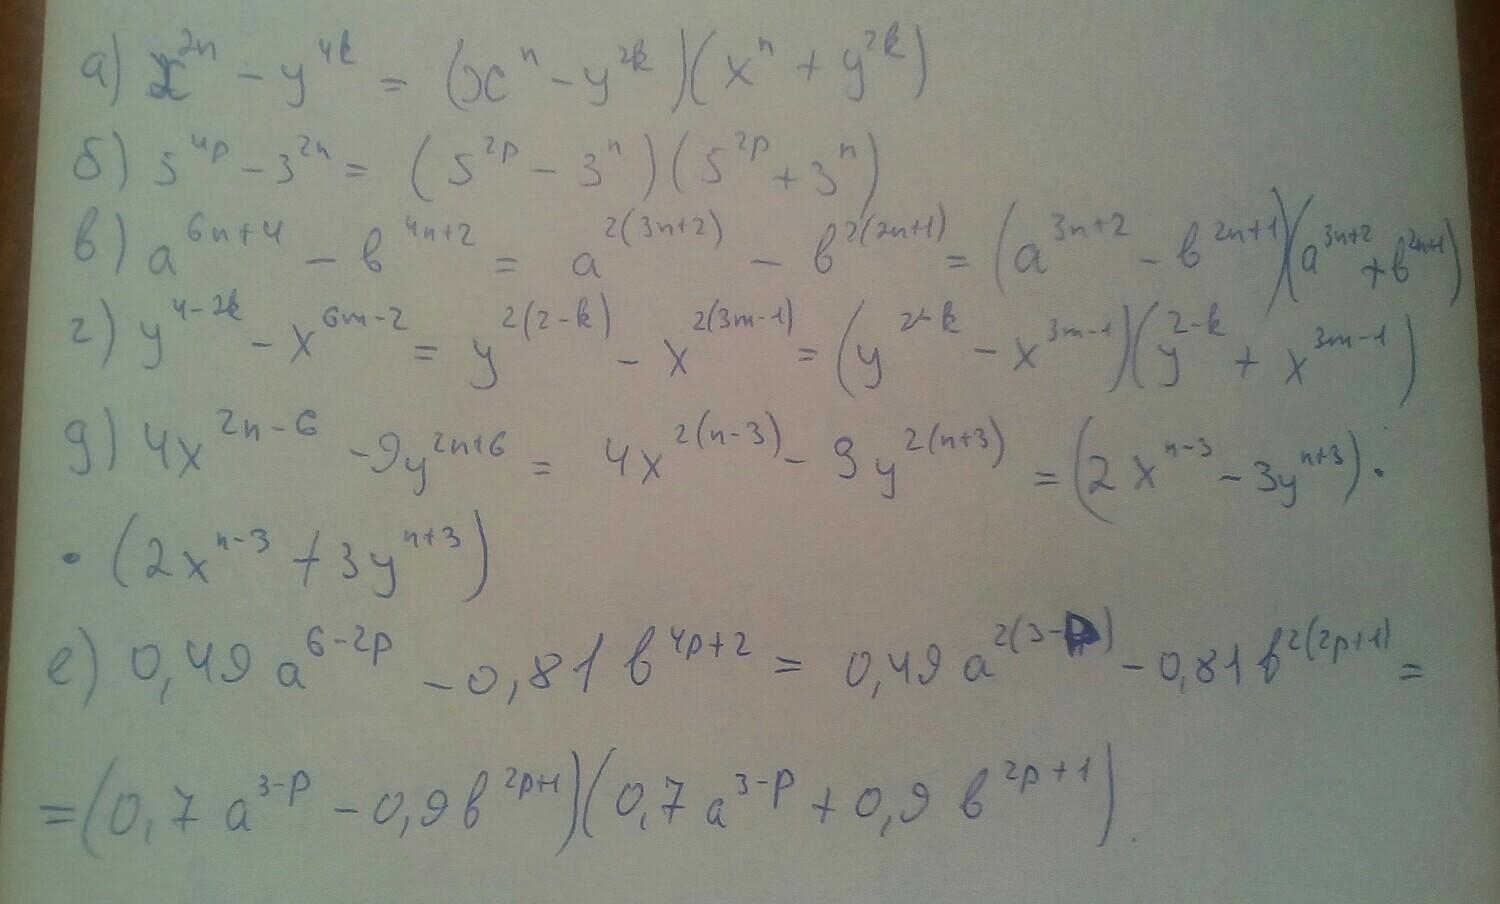 а) x^{2n} - y^{4k} = (x^n - y^{2k})(x^n + y^{2k})
б) 5^{4p} - 3^{2n} = (5^{2p} - 3^n)(5^{2p} + 3^n)
в) a^{6n+4} - b^{4n+2} = a^{2(3n+2)} - b^{2(2n+1)} = (a^{3n+2} - b^{2n+1})(a^{3n+2} + b^{2n+1})
г) y^{4-2k} - x^{6m-2} = y^{2(2-k)} - x^{2(3m-1)} = (y^{2-k} - x^{3m-1})(y^{2-k} + x^{3m-1})
д) 4x^{2n-6} - 9y^{2n+6} = 4x^{2(n-3)} - 9y^{2(n+3)} = (2x^{n-3} - 3y^{n+3}) ·
· (2x^{n-3} + 3y^{n+3})
е) 0,49a^{6-2p} - 0,81b^{4p+2} = 0,49a^{2(3-p)} - 0,81b^{2(2p+1)} =
= (0,7a^{3-p} - 0,9b^{2p+1})(0,7a^{3-p} + 0,9b^{2p+1}).